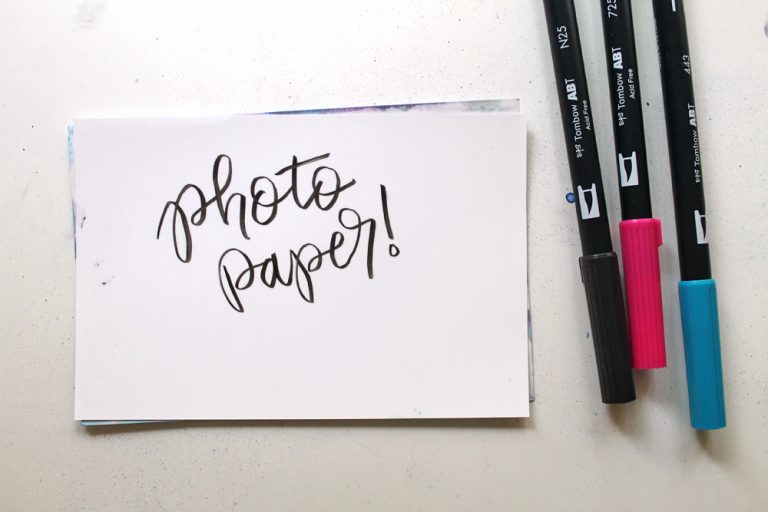 photo
paper!
N25
ABT
Tombow
Acid Free
725
ABT
Tombow
Acid Free
443
Tombow